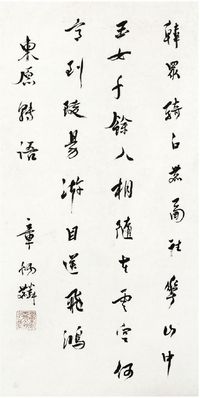 韓眾騎白鹿西往華山中
玉女千餘人相隨在雲空何
意到陵陽游目送飛鴻
東原 語
章炳麟